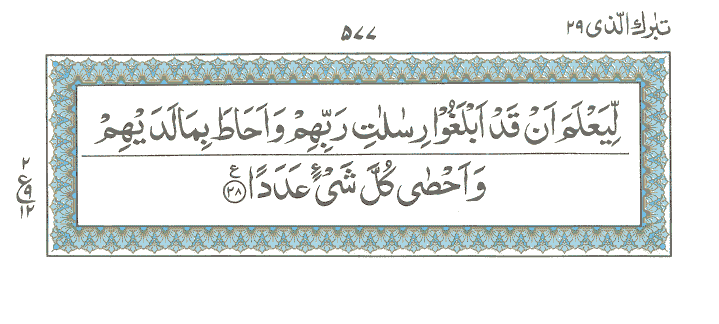 تبٰرك الّذى ٢٩
۵۷۷
لِّيَعْلَمَ اَنْ قَدْ اَبْلَغُوْا رِسٰلٰتِ رَبِّهِمْ وَاَحَاطَ بِمَا لَدَيْهِمْ
وَاَحْصٰى كُلَّ شَىْءٍ عَدَدًا ع ٢٨
٢
ع
٩
١٢